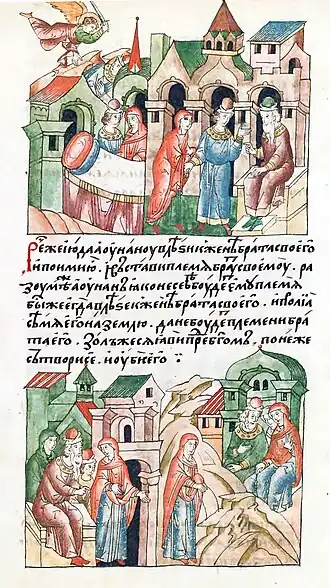 Реⷱ҇ же їюда оунаноу влѣзи к женѣ брата своего
и поими ю. и въстави племѧ братоу своемоу. ра
зоумѣ оунанъ ꙗко не себѣ боуде племѧ
бы же егда влѣзе к женѣ брата своего. и пролїа
сѣмѧ его на землю. да не боуде племени бра
та его. золъ же сѧ ꙗви преⷣ бг҃омъ, понеже
сътвори се. и оуби его :